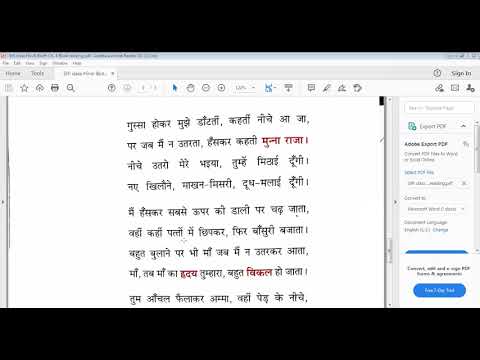 Sign In
Export PDF
Adobe Export PDF
Convert PDF Files to Word
or Excel Online
Select PDF File
Convert to
Microsoft Word (*.docx)
Document Language:
Convert
गुस्सा होकर मुझे डाँटतीं, कहतीं नीचे आ जा,
पर जब मैं न उतरता, हँसकर कहतीं मुन्ना राजा।
नीचे उतरो मेरे भइया, तुम्हें मिठाई दूँगी।
नए खिलौने, माखन-मिसरी, दूध-मलाई दूँगी।
मैं हँसकर सबसे ऊपर की डाली पर चढ़ जाता,
वहीं कहीं पत्तों में छिपकर, फिर बाँसुरी बजाता।
बहुत बुलाने पर भी माँ जब मैं न उतरकर आता,
माँ, तब माँ का हृदय तुम्हारा, बहुत विकल हो जाता।
तुम आँचल फैलाकर अम्मा, वहीं पेड़ के नीचे,
Convert, edit and e-sign PDF
forms & agreements
Free 7-Day Trial